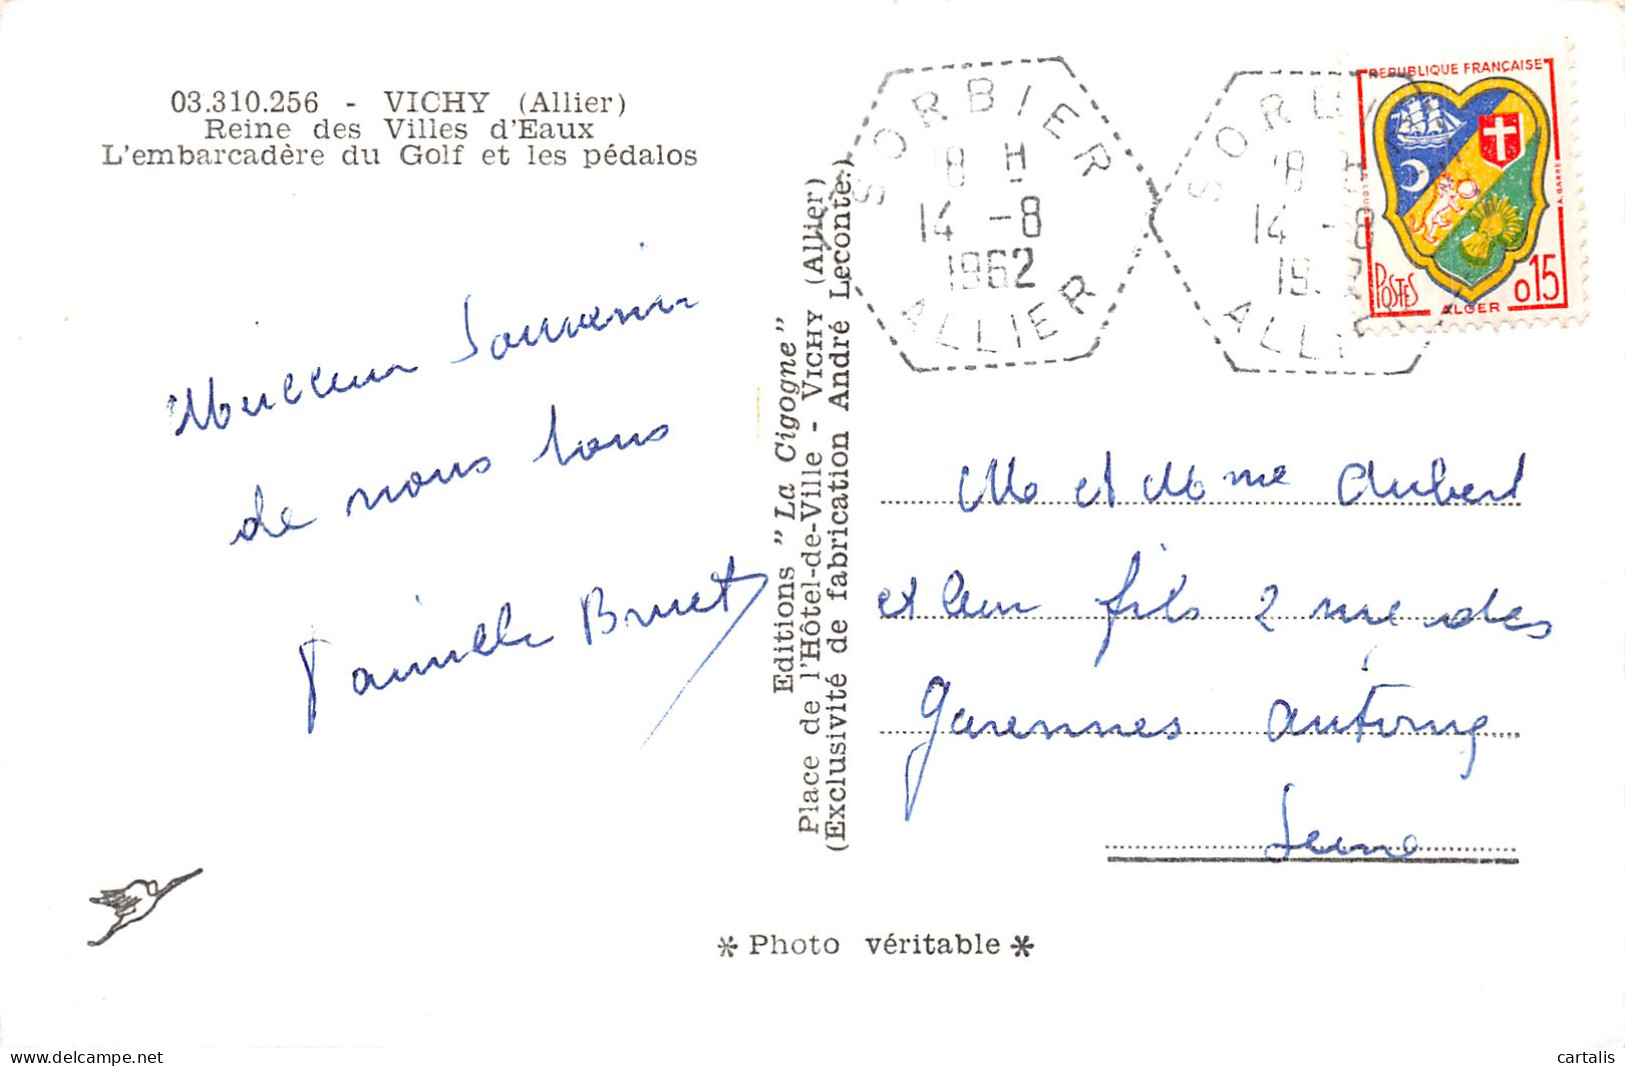 03.310.256 - VICHY (Allier)
Reine des Villes d'Eaux
L'embarcadère du Golf et les pédalos
Meilleur Souvenir
de nous tous
Famille Brunet
Editions "La Cigogne"
Place de l'Hôtel-de-Ville - VICHY (Allier)
(Exclusivité de fabrication André Leconte.)
SORBIER
18 H
14 -8
1962
ALLIER
SORBIER
18 H
14 -8
ALLIER
REPUBLIQUE FRANÇAISE
POSTES
ALGER
0,15
M et Mme Aubert
et leur fils 2 rue des
Garennes Antony
Seine
* Photo véritable *
delcampe.net
cartalis